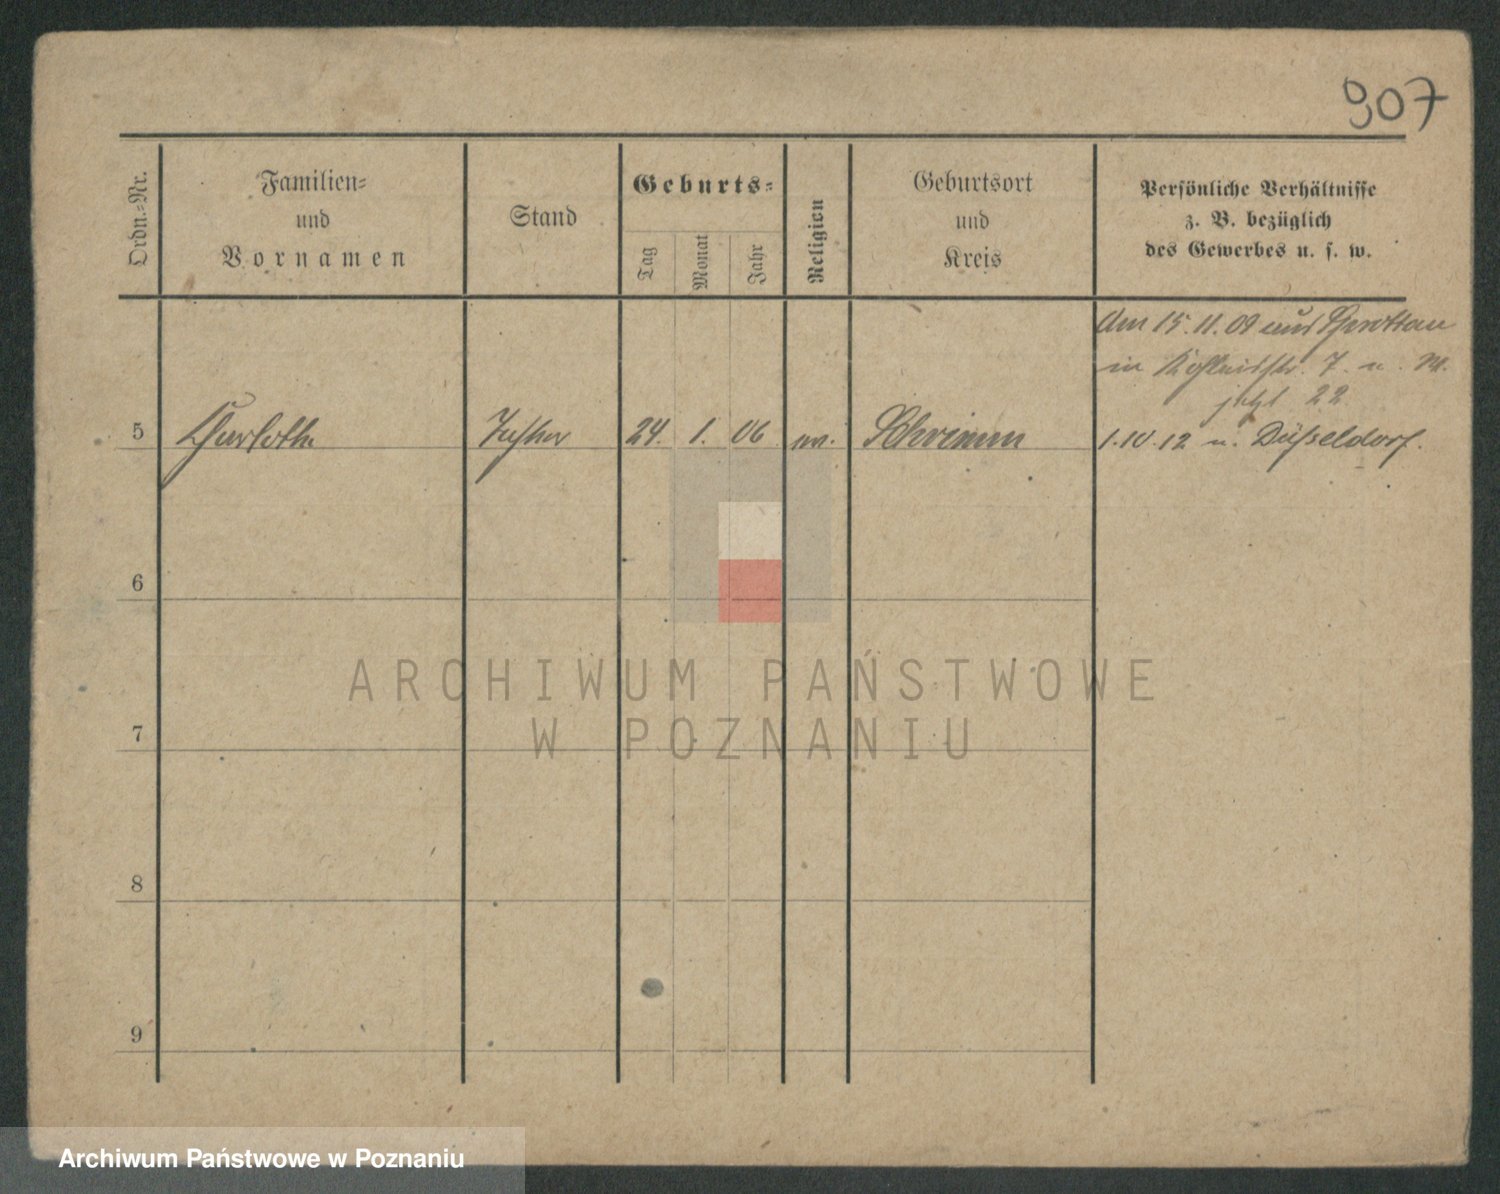 907
Ordn.-Nr.
Familien-
und
Vornamen
Stand
Geburts-
Tag
Monat
Jahr
Religion
Geburtsort
und
Kreis
Persönliche Verhältnisse
z. B. bezüglich
des Gewerbes u. s. w.
Am 15.11.09 aus Sprottau
in 7. u. M.
jetzt 22
5 Charlotte Tochter 24. 1. 06 ev. Schrimm 1.10.12 n. Düsseldorf.
6
7
8
9
ARCHIWUM PAŃSTWOWE
W POZNANIU
Archiwum Państwowe w Poznaniu